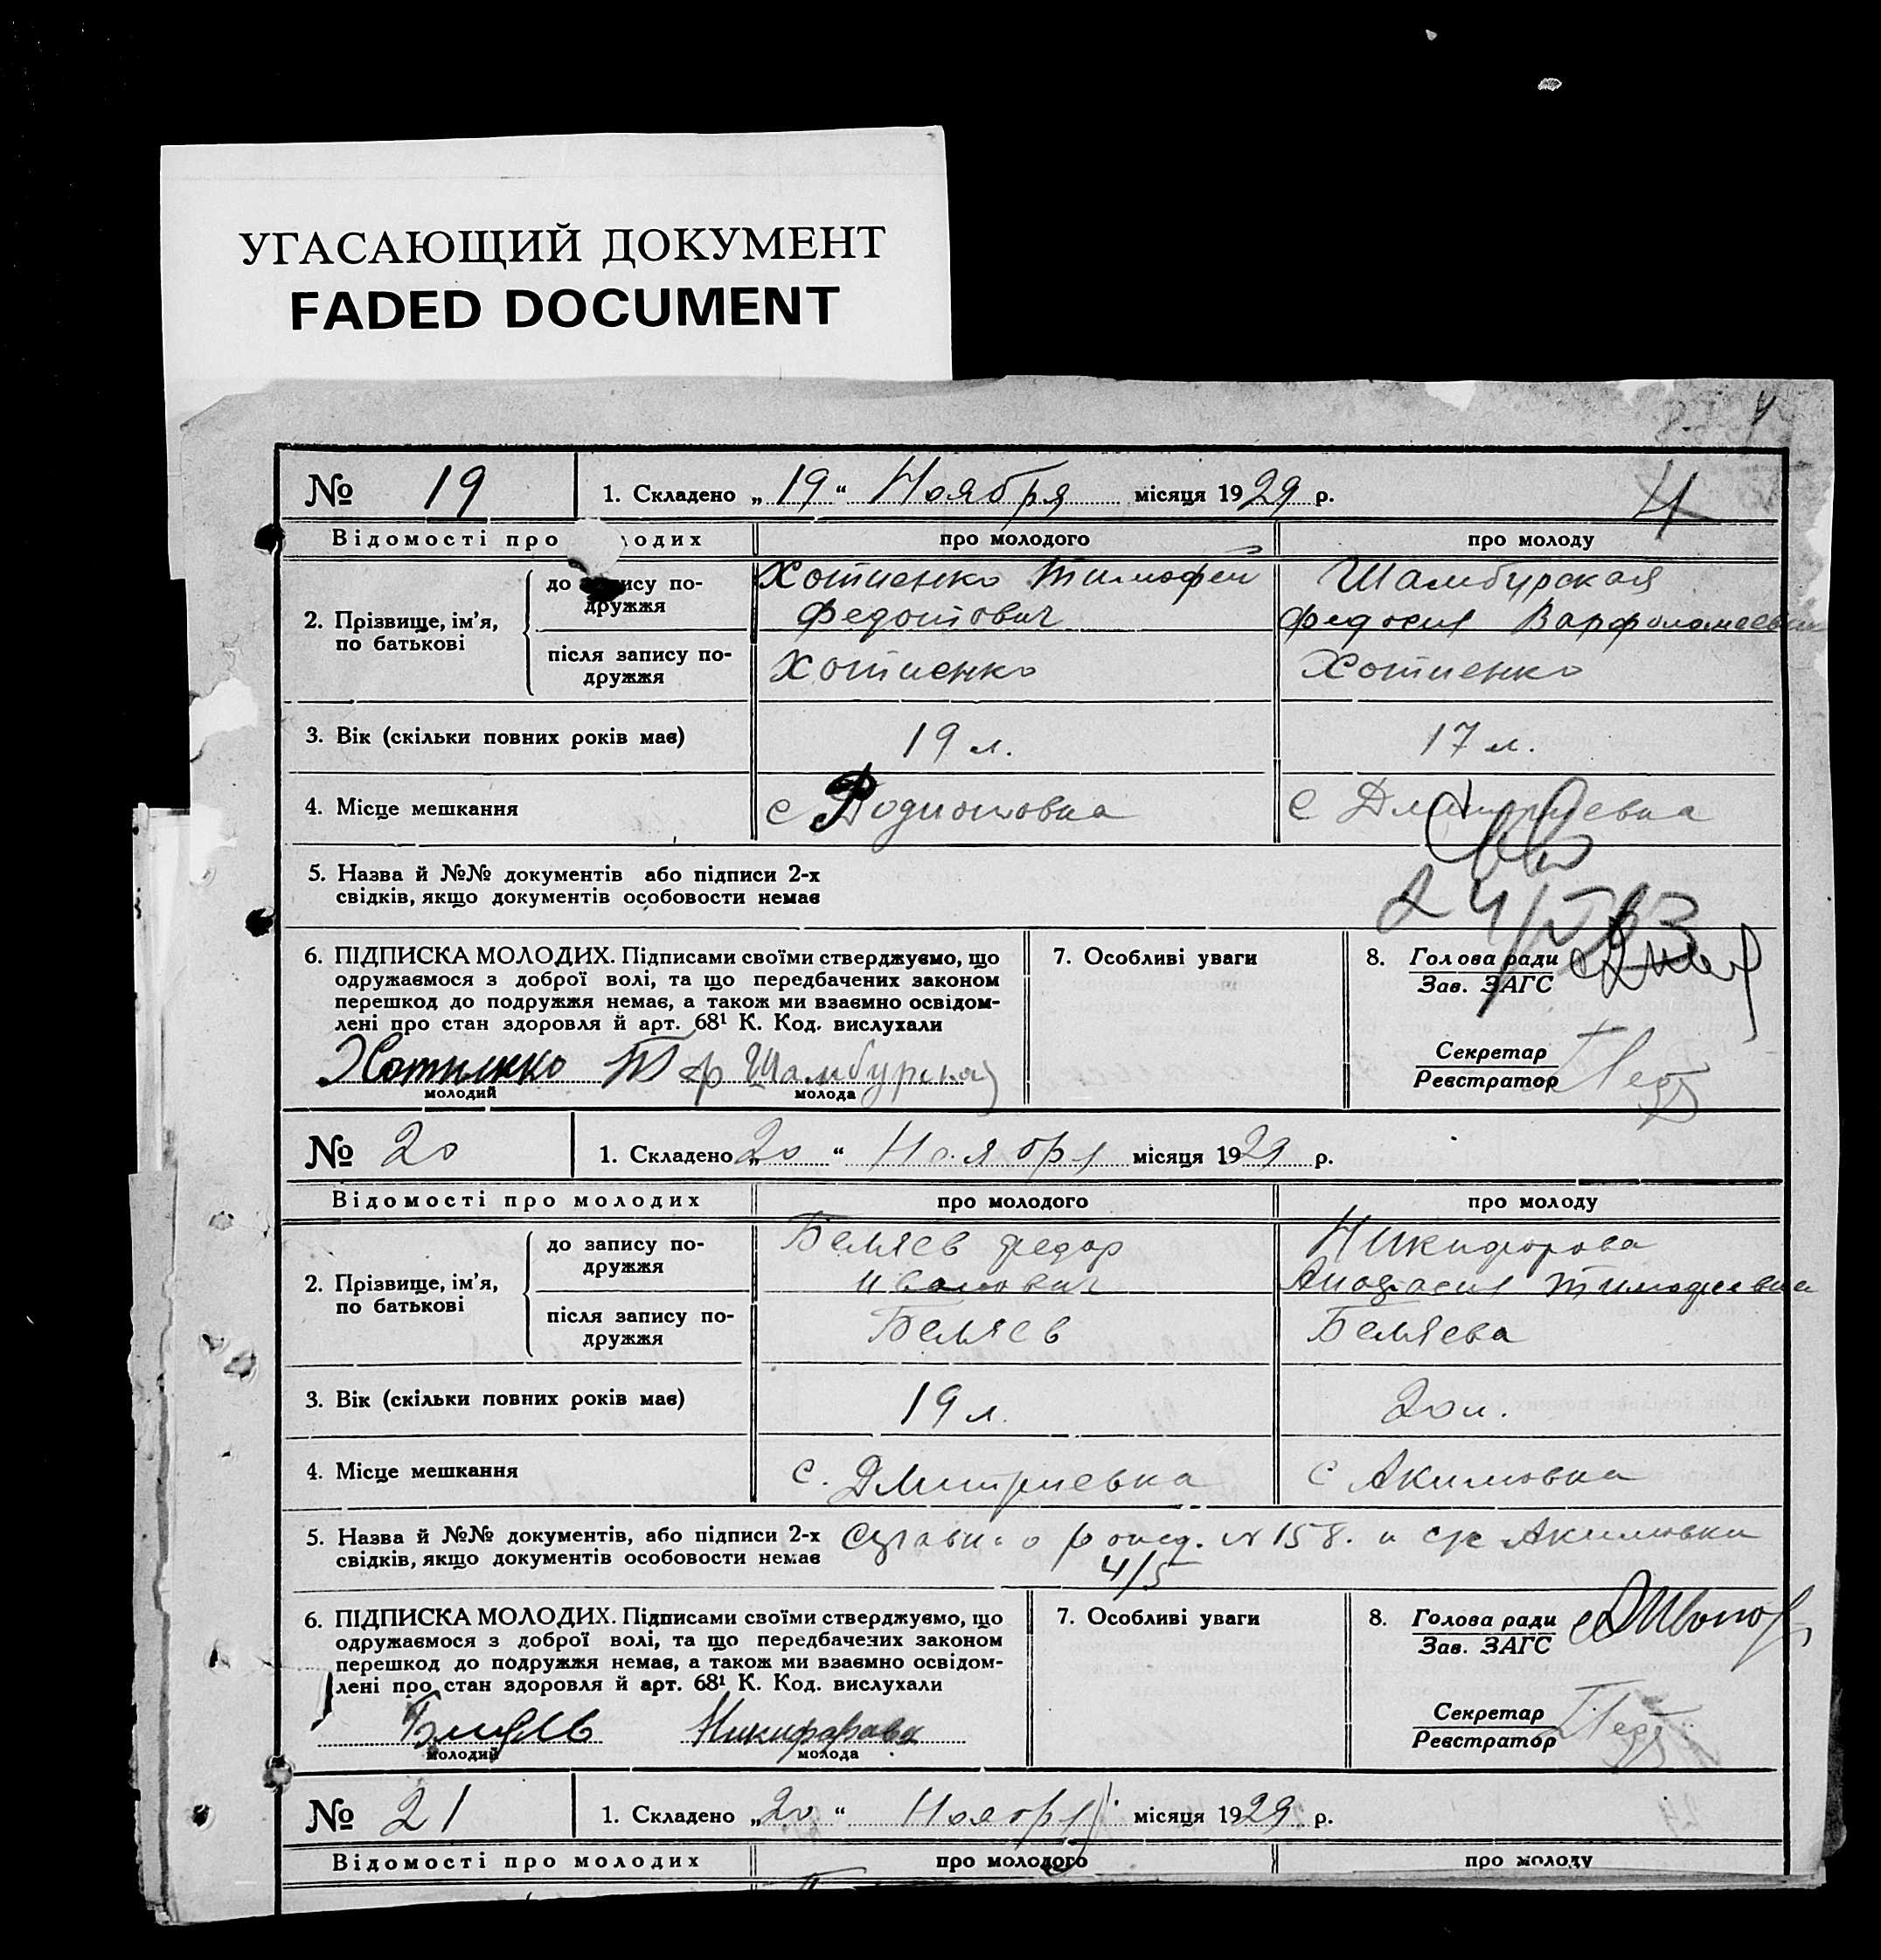 УГАСАЮЩИЙ ДОКУМЕНТ
FADED DOCUMENT
4
№ 19 1. Складено „19“ Ноября місяця 1929 р.
Відомості про молодих про молодого про молоду
2. Прізвище, ім'я, по батькові
до запису по-
дружжя
Хотиенко Тимофей
Федотович
Шамбурская
Федосия Варфоломеевна
після запису по-
дружжя
Хотиенко
Хотиенко
3. Вік (скільки повних років має) 19 л. 17 л.
4. Місце мешкання с Родионовка с Дмитриевка
5. Назва й №№ документів або підписи 2-х
свідків, якщо документів особовости немає
6. ПІДПИСКА МОЛОДИХ. Підписами своїми стверджуємо, що
одружаємося з доброї волі, та що передбачених законом
перешкод до подружжя немає, а також ми взаємно освідом-
лені про стан здоровля й арт. 68¹ К. Код. вислухали
Хотиенко Т ф Шамбурская
молодий молода
7. Особливі уваги
8. Голова ради
Зав. ЗАГС
Секретар
Реєстратор
№ 20 1. Складено „20“ Ноября місяця 1929 р.
Відомості про молодих про молодого про молоду
2. Прізвище, ім'я,
по батькові
до запису по-
дружжя
Беляев Федор
Иванович
Никифорова
Анастасия Тимофеевна
після запису по-
дружжя
Беляев
Беляева
3. Вік (скільки повних років має) 19 л. 20 л.
4. Місце мешкання с. Дмитриевка с Акимовка
5. Назва й №№ документів, або підписи 2-х
свідків, якщо документів особовости немає
№ 158. и Акимовки
4/5
6. ПІДПИСКА МОЛОДИХ. Підписами своїми стверджуємо, що
одружаємося з доброї волі, та що передбачених законом
перешкод до подружжя немає, а також ми взаємно освідом-
лені про стан здоровля й арт. 68¹ К. Код. вислухали
Беляев Никифорова
молодий молода
7. Особливі уваги
8. Голова ради
Зав. ЗАГС
Секретар
Реєстратор
№ 21 1. Складено „20“ Ноября місяця 1929 р.
Відомості про молодих про молодого про молоду